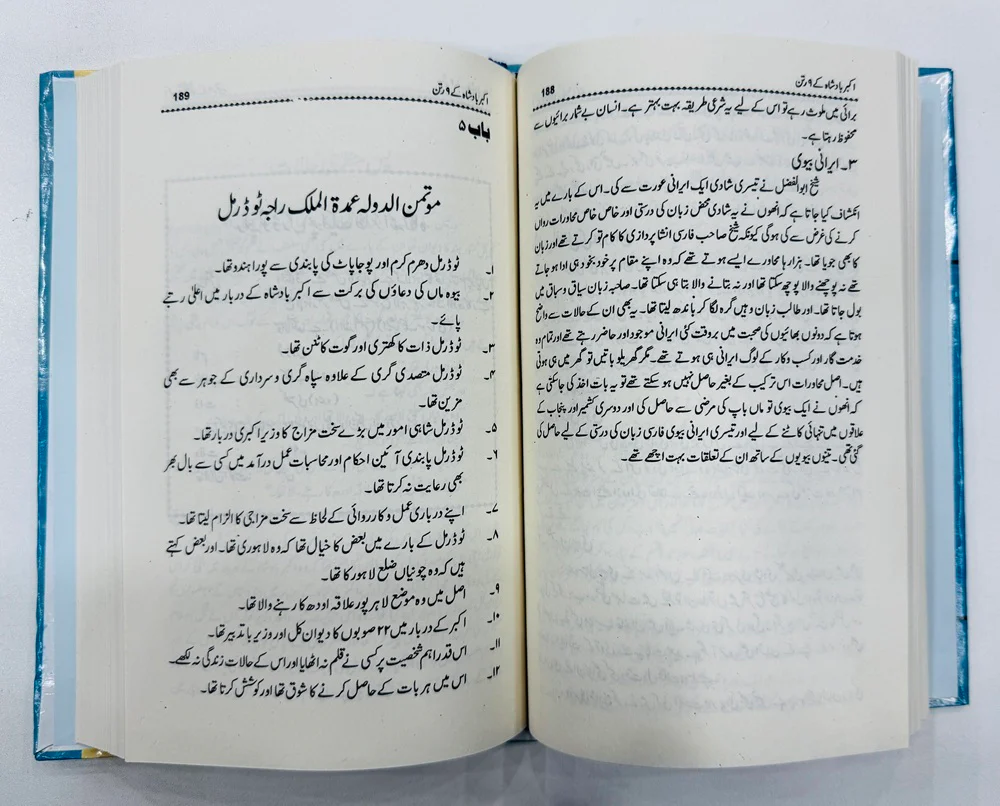 188
اکبر بادشاہ کے ۹ رتن
برائی میں ملوث رہے تو اس کے لیے یہ شرعی طریقہ بہت بہتر ہے۔ انسان بے شمار برائیوں سے
محفوظ رہتا ہے۔
۳۔ ایرانی بیوی
شیخ ابوالفضل نے تیسری شادی ایک ایرانی عورت سے کی۔ اس کے بارے میں یہ
انکشاف کیا جاتا ہے کہ انھوں نے یہ شادی محض زبان کی درستی اور خاص خاص محاورات رواں
کرنے کی غرض سے کی ہوگی کیونکہ شیخ صاحب فارسی انشا پردازی کا کام تو کرتے تھے اور زبان
کا بھی جویا تھا۔ ہزار ہا محاورے ایسے ہوتے تھے کہ وہ اپنے مقام پر خود بخود ہی ادا ہو جاتے
تھے نہ پوچھنے والا پوچھ سکتا تھا اور نہ بتانے والا بتا ہی سکتا تھا۔ صاحبہ زبان سیاق و سباق میں
بول جاتا تھا۔ اور طالب زبان وہیں گرہ لگا کر باندھ لیتا تھا۔ یہ بھی ان کے حالات سے واضح
ہوتا ہے کہ دونوں بھائیوں کی صحبت میں بروقت کئی ایرانی موجود اور حاضر رہتے تھے اور تمام وہ
خدمت گار اور کسب و کار کے لوگ ایرانی ہی ہوتے تھے۔ مگر گھریلو باتیں تو گھر میں ہی ہوتی
ہیں۔ اصل محاورات اس ترکیب کے بغیر حاصل نہیں ہو سکتے تھے تو یہ بات اخذ کی جاسکتی ہے
کہ انھوں نے ایک بیوی تو ماں باپ کی مرضی سے حاصل کی اور دوسری کشمیر اور پنجاب کے
علاقوں میں تنہائی کاٹنے کے لیے اور تیسری ایرانی بیوی فارسی زبان کی درستی کے لیے حاصل کی
گئی تھی۔ تینوں بیویوں کے ساتھ ان کے تعلقات بہت اچھے تھے۔
189
اکبر بادشاہ کے ۹ رتن
باب ۵
موتمن الدولہ عمدۃ الملک راجہ ٹوڈرمل
۱۔ ٹوڈرمل دھرم کرم اور پوجا پاٹ کی پابندی سے پورا ہندو تھا۔
۲۔ بیوہ ماں کی دعاؤں کی برکت سے اکبر بادشاہ کے دربار میں اعلیٰ رتبے
پائے۔
۳۔ ٹوڈرمل ذات کا کھتری اور گوت کا ٹنن تھا۔
۴۔ ٹوڈرمل متصدی گری کے علاوہ سپاہ گری و سرداری کے جوہر سے بھی
مزین تھا۔
۵۔ ٹوڈرمل شاہی امور میں بڑے سخت مزاج کا وزیر اکبری دربار تھا۔
۶۔ ٹوڈرمل پابندی آئین احکام اور محاسبات عمل درآمد میں کسی سے بال بھر
بھی رعایت نہ کرتا تھا۔
۷۔ اپنے درباری عمل و کارروائی کے لحاظ سے سخت مزاجی کا الزام لیتا تھا۔
۸۔ ٹوڈرمل کے بارے میں بعض کا خیال تھا کہ وہ لاہوری تھا۔ اور بعض کہتے
ہیں کہ وہ چونیاں ضلع لاہور کا تھا۔
۹۔ اصل میں وہ موضع لاہر پور علاقہ اودھ کا رہنے والا تھا۔
۱۰۔ اکبر کے دربار میں ۲۲ صوبوں کا دیوان کل اور وزیر باتدبیر تھا۔
۱۱۔ اس قدر اہم شخصیت پر کسی نے قلم نہ اٹھایا اور اس کے حالات زندگی نہ لکھے۔
۱۲۔ اس میں ہر بات کے حاصل کرنے کا شوق تھا اور کوشش کرتا تھا۔